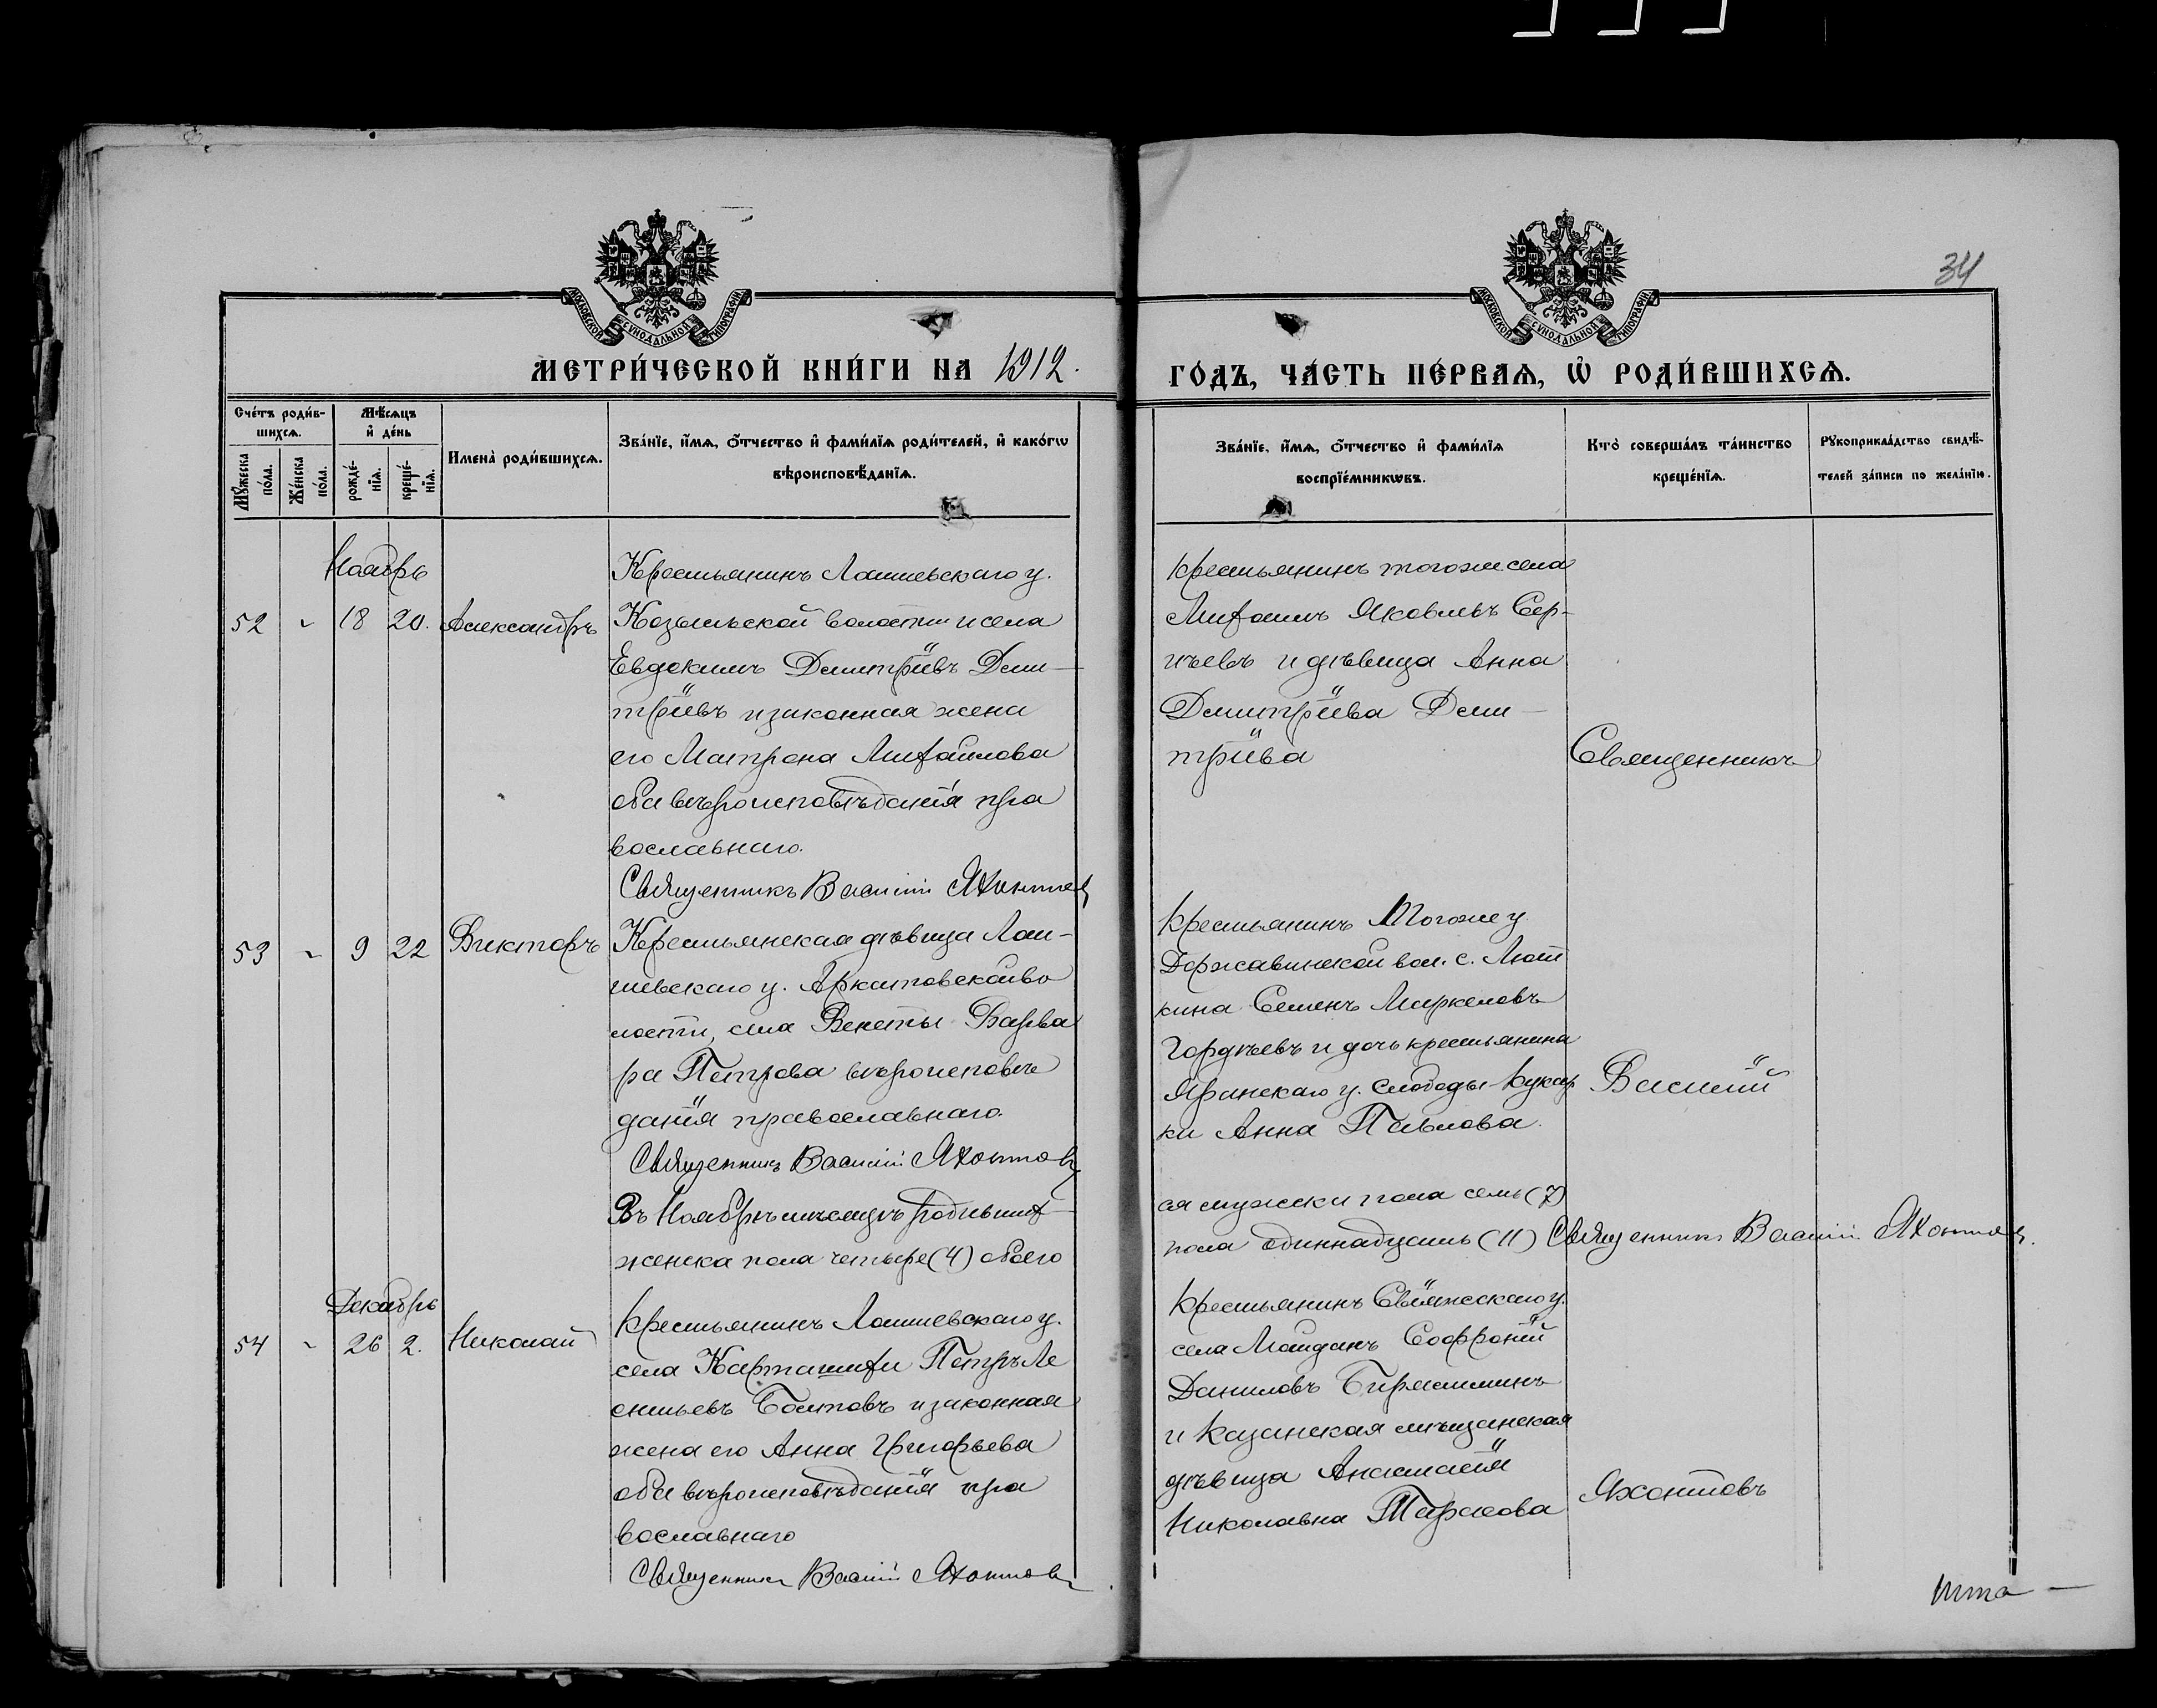 34
МОСКОВСКОЙ СУНОДАЛЬНОЙ ТИПОГРАФІИ
МОСКОВСКОЙ СУНОДАЛЬНОЙ ТИПОГРАФІИ
МЕТРИ́ЧЕСКОЙ КНИ́ГИ НА 1912.
ГО́ДЪ, ЧА́СТЬ ПЕ́РВАѦ, Ѡ҆ РОДИ́ВШИХСѦ.
Сче́тъ роди́в-
шихсѧ.
Мꙋ́жеска по́ла.
Же́нска по́ла.
Мѣ́сѧцъ
и҆ де́нь
рожде́-нїѧ.
креще́-нїѧ.
Имена̀ роди́вшихсѧ.
Зва́нїе, и҆́мѧ, ѻ҆́тчество и҆ фами́лїѧ роди́телей, и҆ како́гѡ
вѣроисповѣ́данїѧ.
Зва́нїе, и҆́мѧ, ѻ҆́тчество и҆ фами́лїѧ
воспрїе́мникѡвъ.
Кто̀ соверша́лъ та́инство
креще́нїѧ.
Рꙋкоприкла́дство свидѣ́-
телей за́писи по жела́нїю.
Ноябрь
52 - 18 20. Александръ
Крестьянинъ Лаишевскаго у.
Козыльской волости и села
Евдокимъ Димитріевъ Дми-
тріевъ и законная жена
его Матрона Михайлова
оба вѣроисповѣданія пра
вославнаго.
Священникъ Василій Яхонтовъ
крестьянинъ тогоже села
Михаилъ Яковлевъ Сер-
гѣевъ и дѣвица Анна
Димитріева Дми-
тріева
Священникъ
53 - 9 22 Викторъ
Крестьянская дѣвица Лаи-
шевскаго у. Аркатовской во
лости, села Венеты Варва
ра Петрова вѣроисповѣ
данія православнаго.
Священникъ Василій Яхонтовъ
крестьянинъ тогоже у.
Державинской вол. с.
кина Семенъ Маркеловъ
Гордѣевъ и дочь крестьянина
Яранскаго у. слободы Кукар
ки Анна Павлова.
Василій
Въ Ноябрѣ мѣсяцѣ родивших-
ся мужска пола семь (7)
женска пола четыре (4) обоего
пола одиннадцать (11) Священникъ Василій Яхонтовъ.
Декабрь
54 - 26 2. Николай
Крестьянинъ Лаишевскаго у.
села Карташихи Петръ Ле
онтьевъ Болтовъ и законная
жена его Анна Григорьева
оба вѣроисповѣданія пра
вославнаго
Священникъ Василій Яхонтовъ
Крестьянинъ Свіяжскаго у.
села Майданъ Софроній
Даниловъ
и Казанская мѣщанская
дѣвица Анастасія
Николавна Тарасова
Яхонтовъ